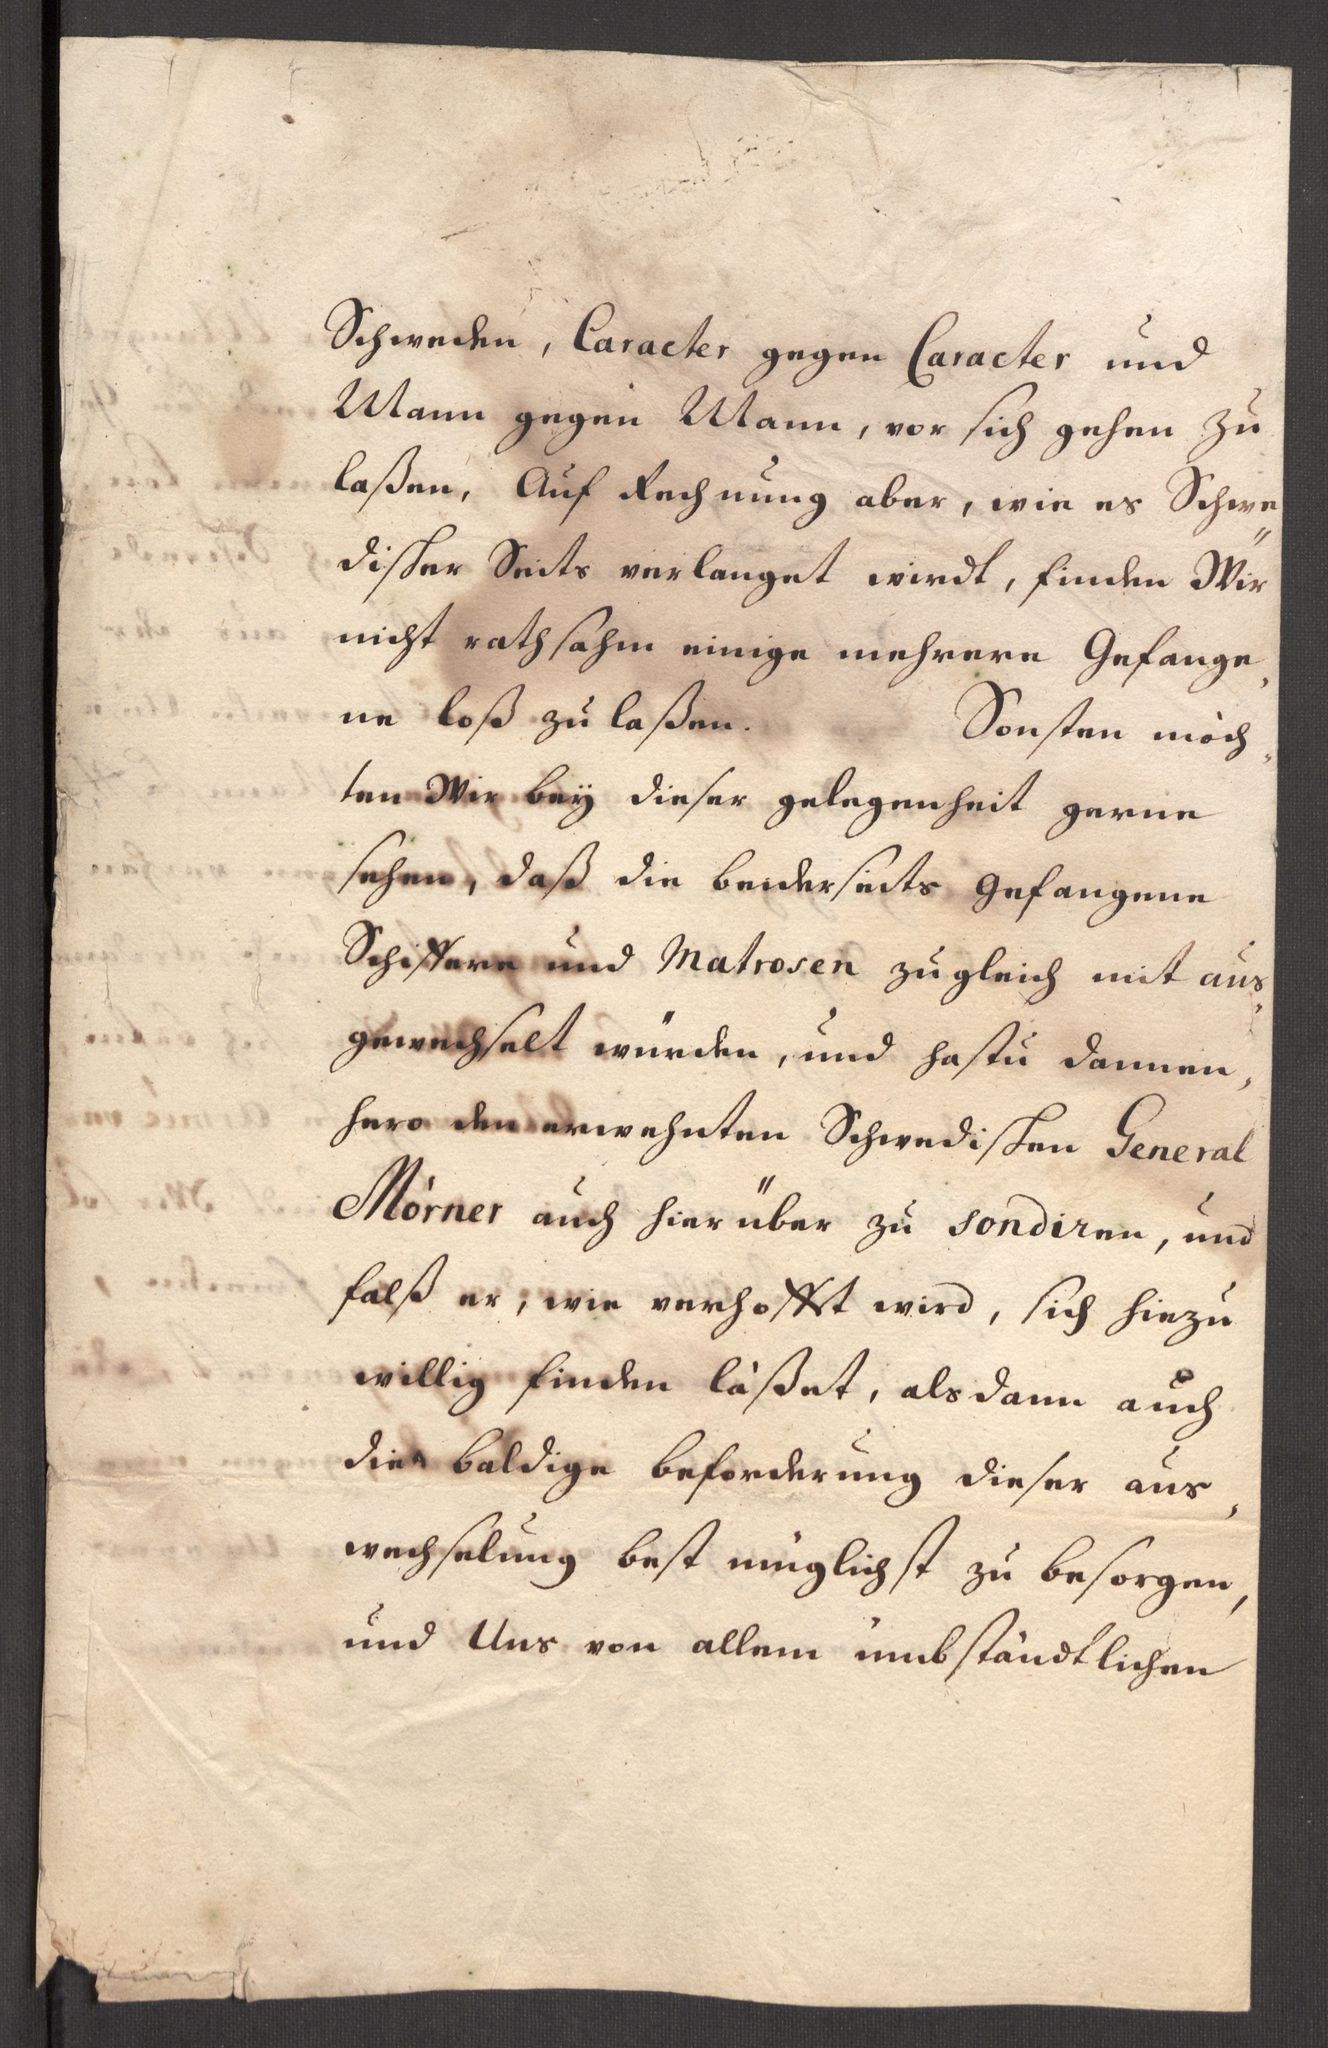 Schweden, Caracter gegen Caracter und
Mann gegen Mann, vor sich gehen zu
laßen, Auf Rechnung aber, wie es Schwe„
discher Seits verlanget wirdt, finden Wir
nicht rathsahm einige mehrere Gefange„
ne loß zu laßen. Sonsten möch„
ten Wir bey dieser gelegenheit gerne
sehen, daß die beiderseits Gefangene
Schiffere und Matrosen zugleich mit aus„
gewechselt würden, und hastu dannen„
hero den erwehnten Schwedischen General
Mörner auch hierüber zu sondiren, und
falß er, wie verhofft wird, sich hiezu
willig finden läßet, alsdann auch
die baldige beforderung dieser aus„
wechselung best müglichst zu besorgen,
und Uns von allem umbständtlichen